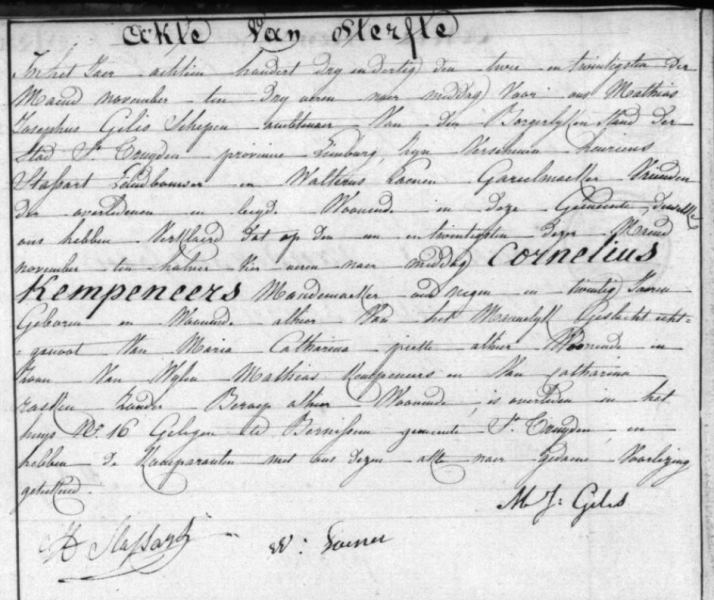 Akte Van Sterfte
In het Jaer achtien hondert dry en dertig den twee en twintigsten der
Maend november ten dry uren naer middag Voor ons Mathias
Josephus Gelis Schepen Ambtenaer Van den Borgerlyken Stand der
Stad St Truyden provincie Limburg, Zyn Verschenen henricus
Stassart Landbouwer en Walterus Loenen Gareelmaeker Vrienden
der overledenen en beyde Woonende in deze Gemeente, dewelke
ons hebben Verklaerd dat op den een en twintigsten dezer Maend
november ten halver vier uren naer middag Cornelius
Kempeneers Mandemaeker oud negen en twintig Jaren
Geboren en Woonende alhier Van het Mannelyk Geslacht echt-
genoot Van Maria Catharina piette alhier Woonende en
Zoon Van Wylen Mathias Kempeneers en Van Catharina
rasken Zonder Beroep alhier Woonende, is overleden in het
huys No 16 Gelegen te Bernissem gemeente St Truyden, en
hebben de Komparanten met ons dezen akt naer Gedaene Voorlezing
geteekend.
M J: Gelis
H Stassart W: Loenen